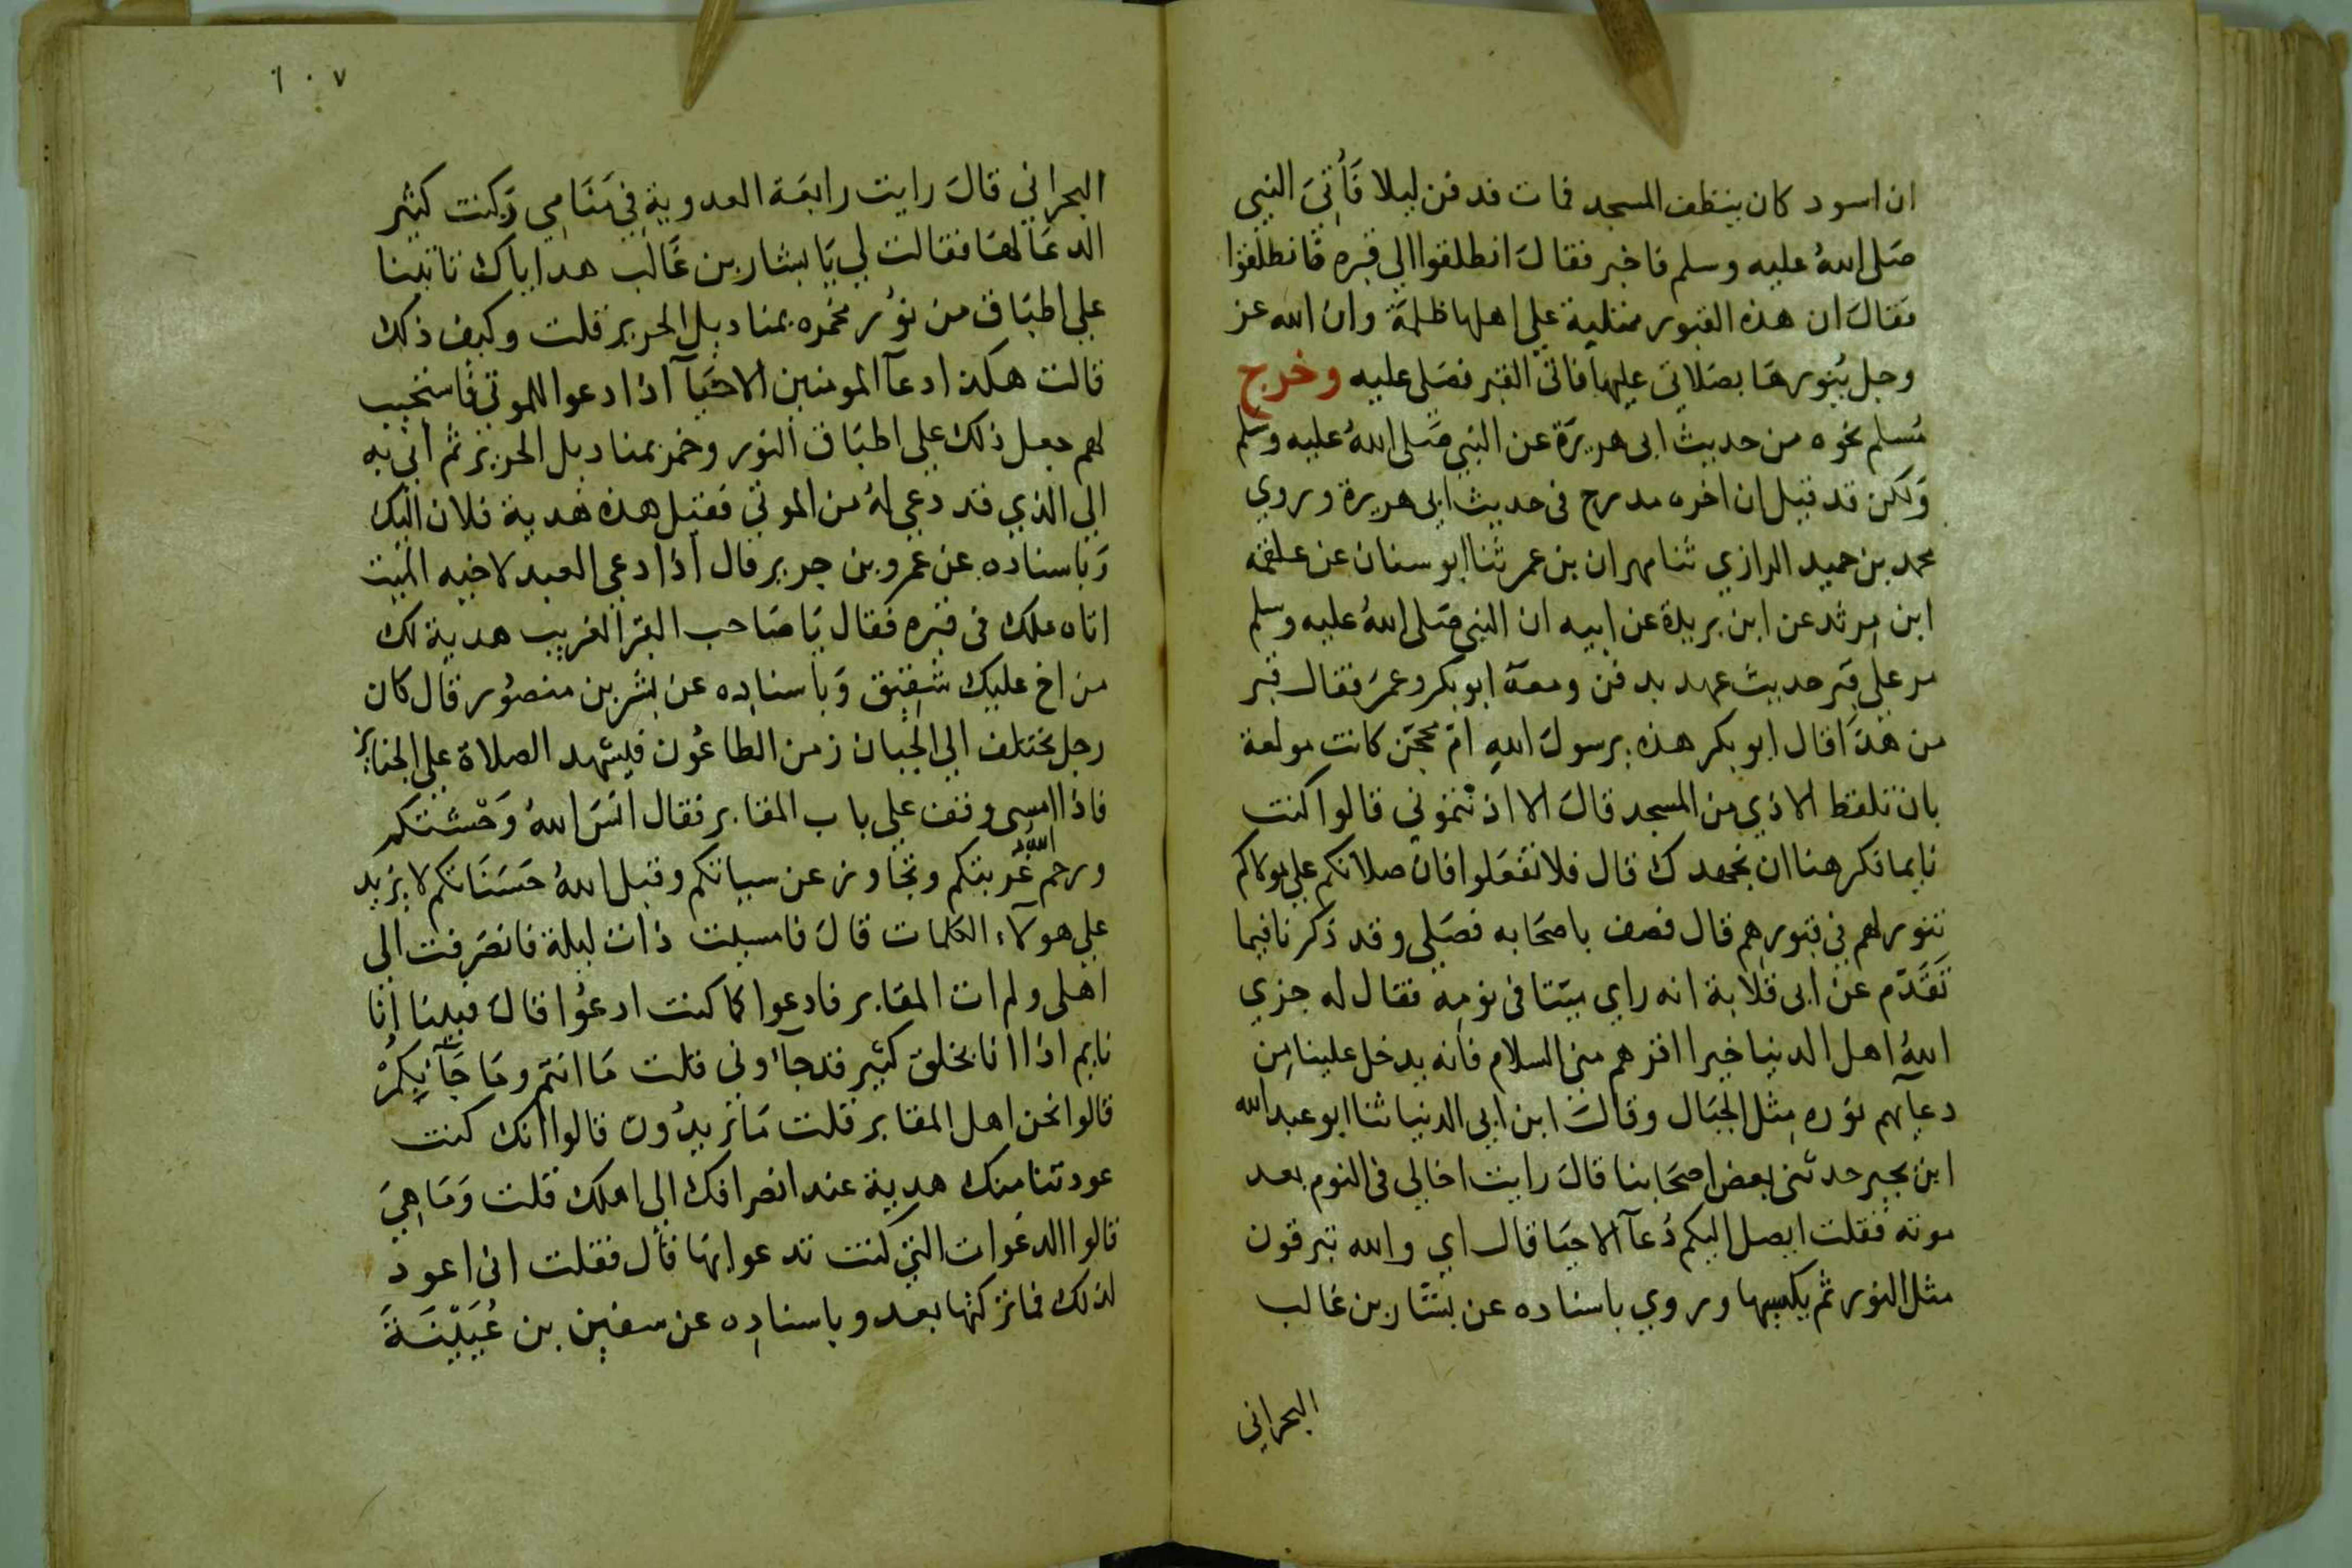 ان اسود كان ينظف المسجد فمات فدفن ليلا فأتي النبي
صلى الله عليه وسلم فاخبر فقال انطلقوا الي قبره فانطلقوا
فقال ان هذه القبور ممتلية علي اهلها ظلمة وان الله عز
وجل ينورها بصلاتي عليها فاتي القبر فصلى عليه وخرج
مسلم نحوه من حديث ابى هريرة عن النبي صلى الله عليه وسلم
ولكن قد قيل ان اخره مدرج فى حديث ابى هريرة وروي
محمد بن حميد الرازي ثنا مهران بن عمر ثنا ابو سنان عن علقمة
ابن مرثد عن ابن بريدة عن ابيه ان النبي صلى الله عليه وسلم
مر على قبر حديث عهد بدفن ومعه ابو بكر وعمر فقال قبر
من هذا قال ابو بكر هذه يرسول الله ام محجن كانت مولعة
بان تلقط الاذي من المسجد قال الا اذنتموني قالوا كنت
نايما فكرهنا ان نجهدك قال فلا تفعلوا فان صلاتكم علي موتاكم
تنور لهم في قبورهم قال فصف باصحابه فصلي وقد ذكرنا فيما
تقدم عن ابى قلابة انه راي ميتا فى نومه فقال له جزي
الله اهل الدنيا خيرا اقرهم منى السلام فانه يدخل علينا من
دعآيهم نوره مثل الجبال وقال ابن ابي الدنيا ثنا ابو عبد الله
ابن بجير حدثنى بعض اصحابنا قال رايت اخا لي فى النوم بعد
موته فقلت ايصل اليكم دعآ الاحيا قال اي والله تترفون
مثل النور ثم يكسيها وروي باسناده عن بشار بن غالب
البحراني
١٠٧
البحراني قال رايت رابعة العدوية في منامي وكنت كثير
الدعا لها فقالت لي يا بشار بن غالب هداياك تاتينا
علي اطباق من نور مخمره بمناديل الحرير قلت وكيف ذلك
قالت هكذا دعآ المومنين الاحيآ اذا دعوا للموتي فاستجيب
لهم جعل ذلك علي اطباق النور وخمر بمناديل الحرير ثم أتي به
الي الذي قد دعي له من الموتي فقيل هذه هدية فلان اليك
وباسناده عن عمرو بن جرير قال اذا دعى العبد لاخيه الميت
اتاه ملك فى قبره فقال يا صاحب القبر الغريب هدية لك
من اخ عليك شفيق وباسناده عن بشر بن منصور قال كان
رجل يختلف الي الجبان زمن الطاعون فيشهد الصلاة علي الجنايز
فاذا امسى وقف علي باب المقابر فقال انس الله وحشتكم
ورحم الله غربتكم وتجاوز عن سياتكم وقبل الله حسناتكم لا يزيد
علي هولآء الكلمات قال فامسيت ذات ليلة فانصرفت الي
اهلى ولم ات المقابر فادعوا كما كنت ادعوا قال فبينا انا
نايم اذا انا بخلق كثير قد جآوني قلت ما انتم وما جآ بكم
قالوا نحن اهل المقابر قلت ما تريدون قالوا انك كنت
عودتنا منك هدية عند انصرافك الي اهلك قلت وما هي
قالوا الدعوات التي كنت تدعوا بها قال فقلت انى اعود
لذلك فما تركتها بعد وباسناده عن سفين بن عيينة